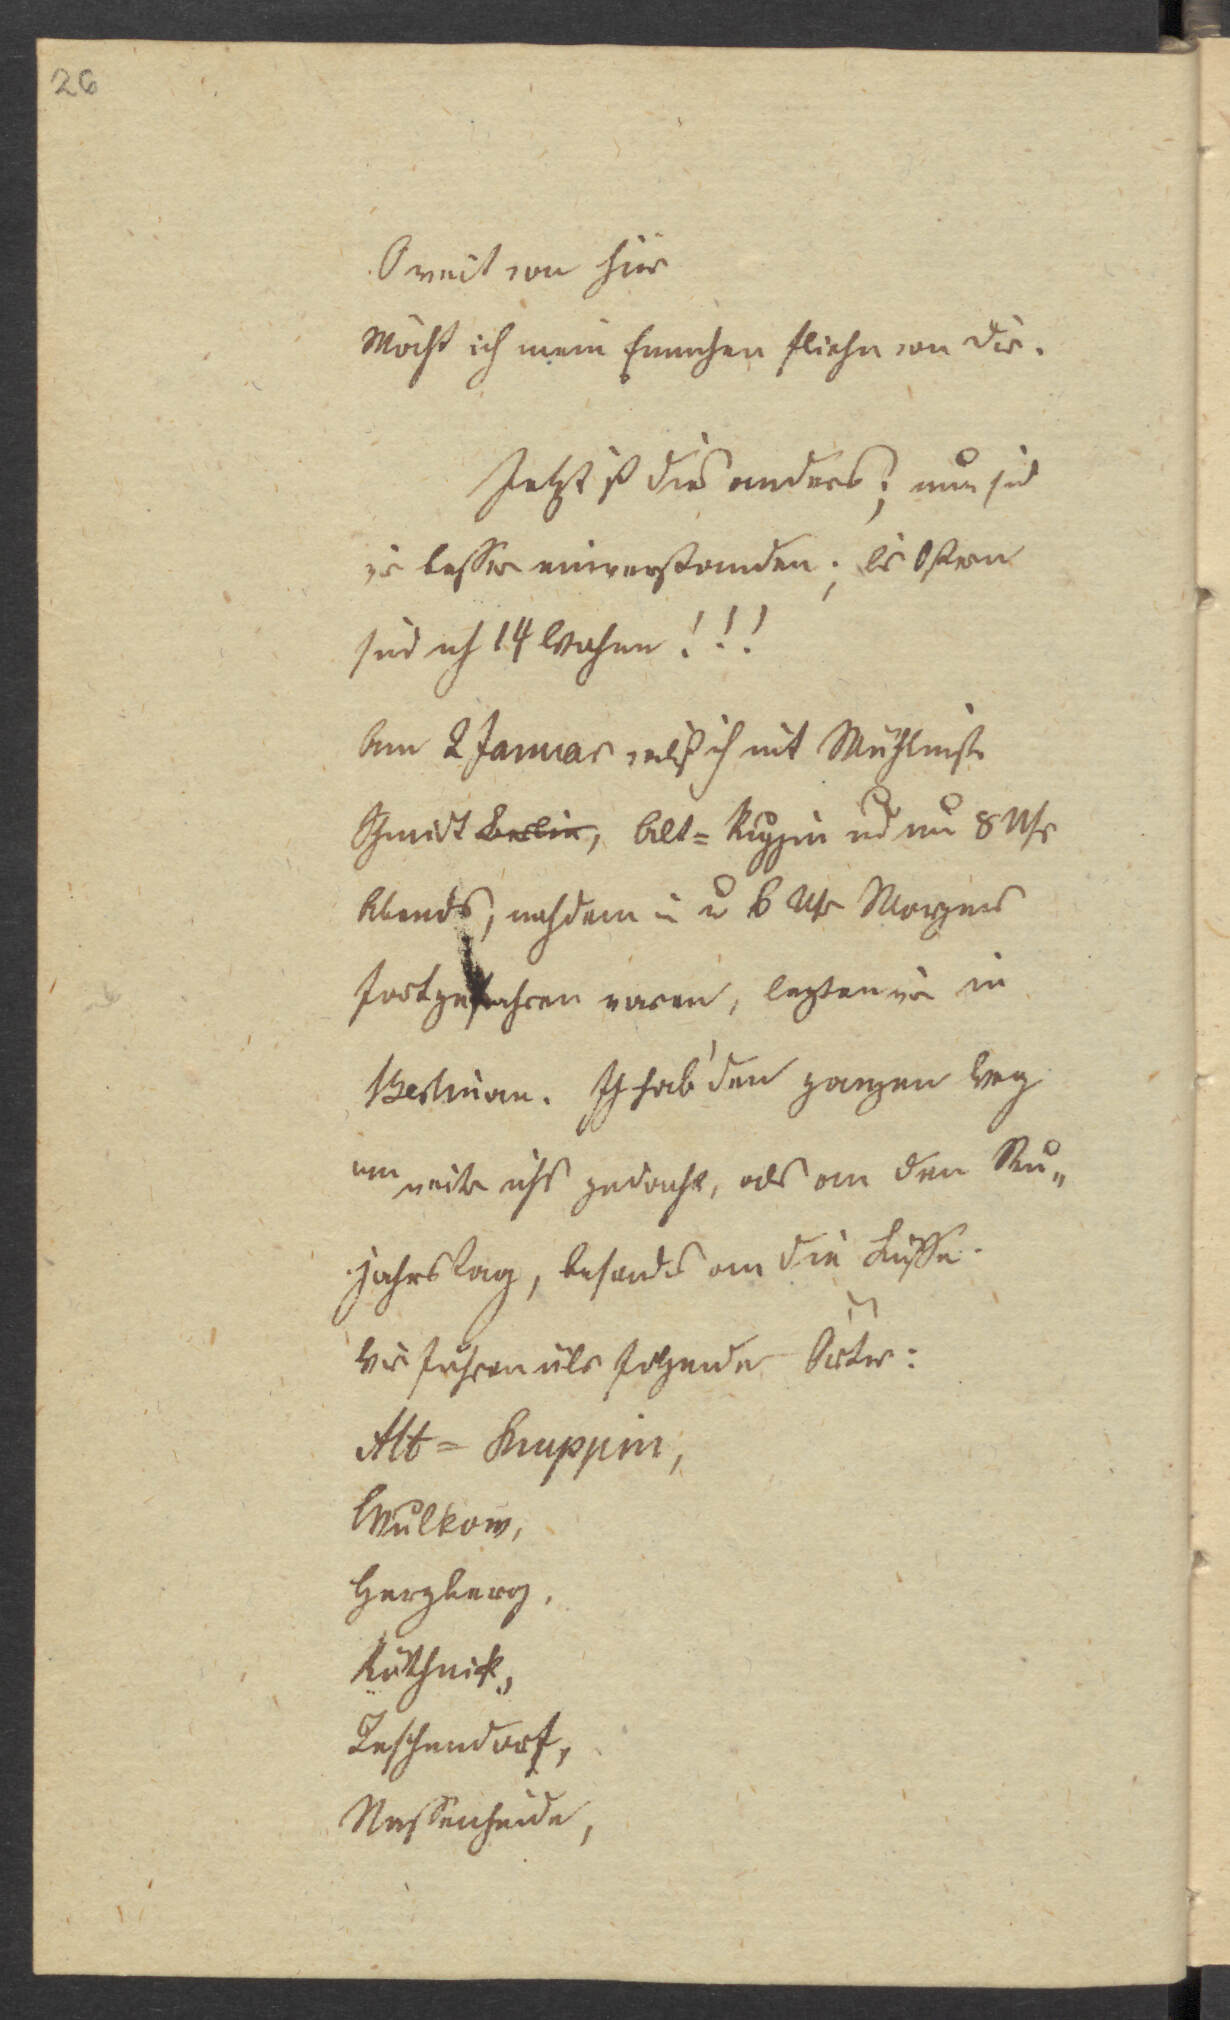 26
O weit von hier
Möcht ich mein Ennchen fliehn von Dir.
Jetzt ist dies anders; nun sind
wir besser einverstanden; bis Ostern
sind noch 14 Wochen!!!
Am 2 Januar verließ ich mit Mühlmstr
Schmidt Berlin, Alt=Ruppin und um 8 Uhr
Abends, nachdem wir um 6 Uhr Morgens
fortgefahren waren, legten wir in
Berlin an. Ich hab' den ganzen Weg
an weiter nichts gedacht, als an den Neu„
jahrstag, besonders an die Küsse.
Wir fuhren über folgende Örter:
Alt=Ruppin,
Wulkow,
Herzberg,
Rüthnick,
Teschendorf,
Nassenheide,